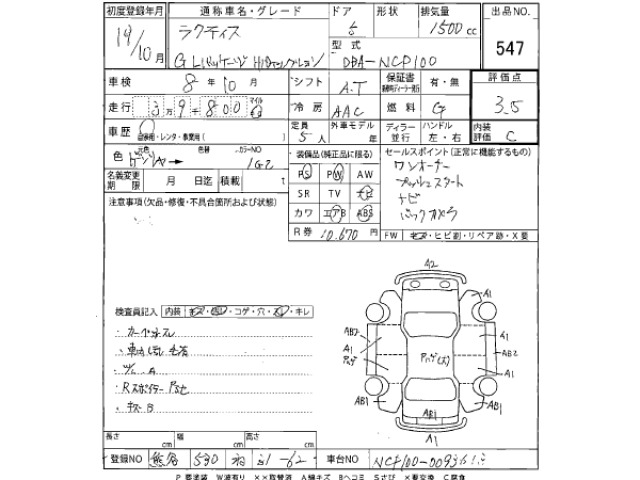 初度登録年月 通称車名・グレード ドア 形状 排気量 出品NO.
19/10月 ラクティス 5 1500cc 547
G Lパッケージ HIDセレクション 型式 DBA-NCP100
車検 8年10月 シフト A.T 保証書 有・無 評価点
走行 3万9千800 マイル 冷房 AAC 燃料 G 3.5
車歴 自家用・レンタ・事業用( ) 定員 5人 外車モデル 年 ディーラー 並行 ハンドル 左・右 内装評価 C
色 元色 色替 カラーNO 1G2 装備品(純正品に限る) セールスポイント(正常に機能するもの)
名義変更期限 月 日迄 積載 t PS PW AW ワンオーナー
注意事項(欠品・修復・不具合箇所および状態) SR TV ナビ プッシュスタート
カワ エアB ABS ナビ
バックカメラ
R券 10,670 FW キズ・ヒビ割・リペア跡・X要
A2
検査員記入 内装 キズ・コゲ・穴・キレ
A1 A1
AB2 AB2
A1 A1
AB1 AB1 AB1
A1
長さ cm 幅 cm 高さ cm
登録NO 熊谷 530 31-62 車台NO NCP100-0093
P 要塗装 W波有り ××取替済 A線キズ Bヘコミ Sさび ×要交換 C腐食